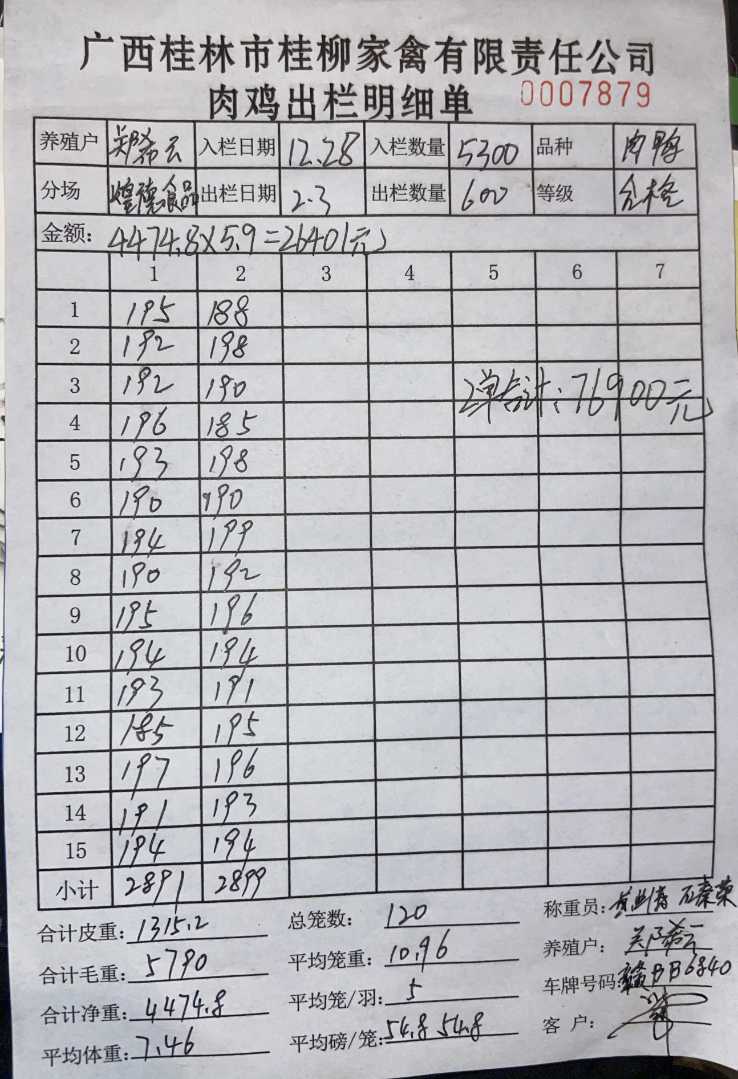 广西桂林市桂柳家禽有限责任公司
肉鸡出栏明细单 0007879
养殖户 郑希云 入栏日期 12.28 入栏数量 5300 品种 肉鸭
分场 煌德食品 出栏日期 2.3 出栏数量 600 等级 合格
金额: 4474.8×5.9=26401元
1 2 3 4 5 6 7
1 195 188
2 192 198
3 192 190 2单合计:76900元
4 196 185
5 193 198
6 190 190
7 194 199
8 190 192
9 195 196
10 194 194
11 193 191
12 185 195
13 197 196
14 191 193
15 194 194
小计 2891 2899
合计皮重: 1315.2 总笼数: 120 称重员:
合计毛重: 5790 平均笼重: 10.96 养殖户: 郑希云
合计净重: 4474.8 平均笼/羽: 5 车牌号码: 赣BB6840
平均体重: 7.46 平均磅/笼: 54.8 54.8 客 户: